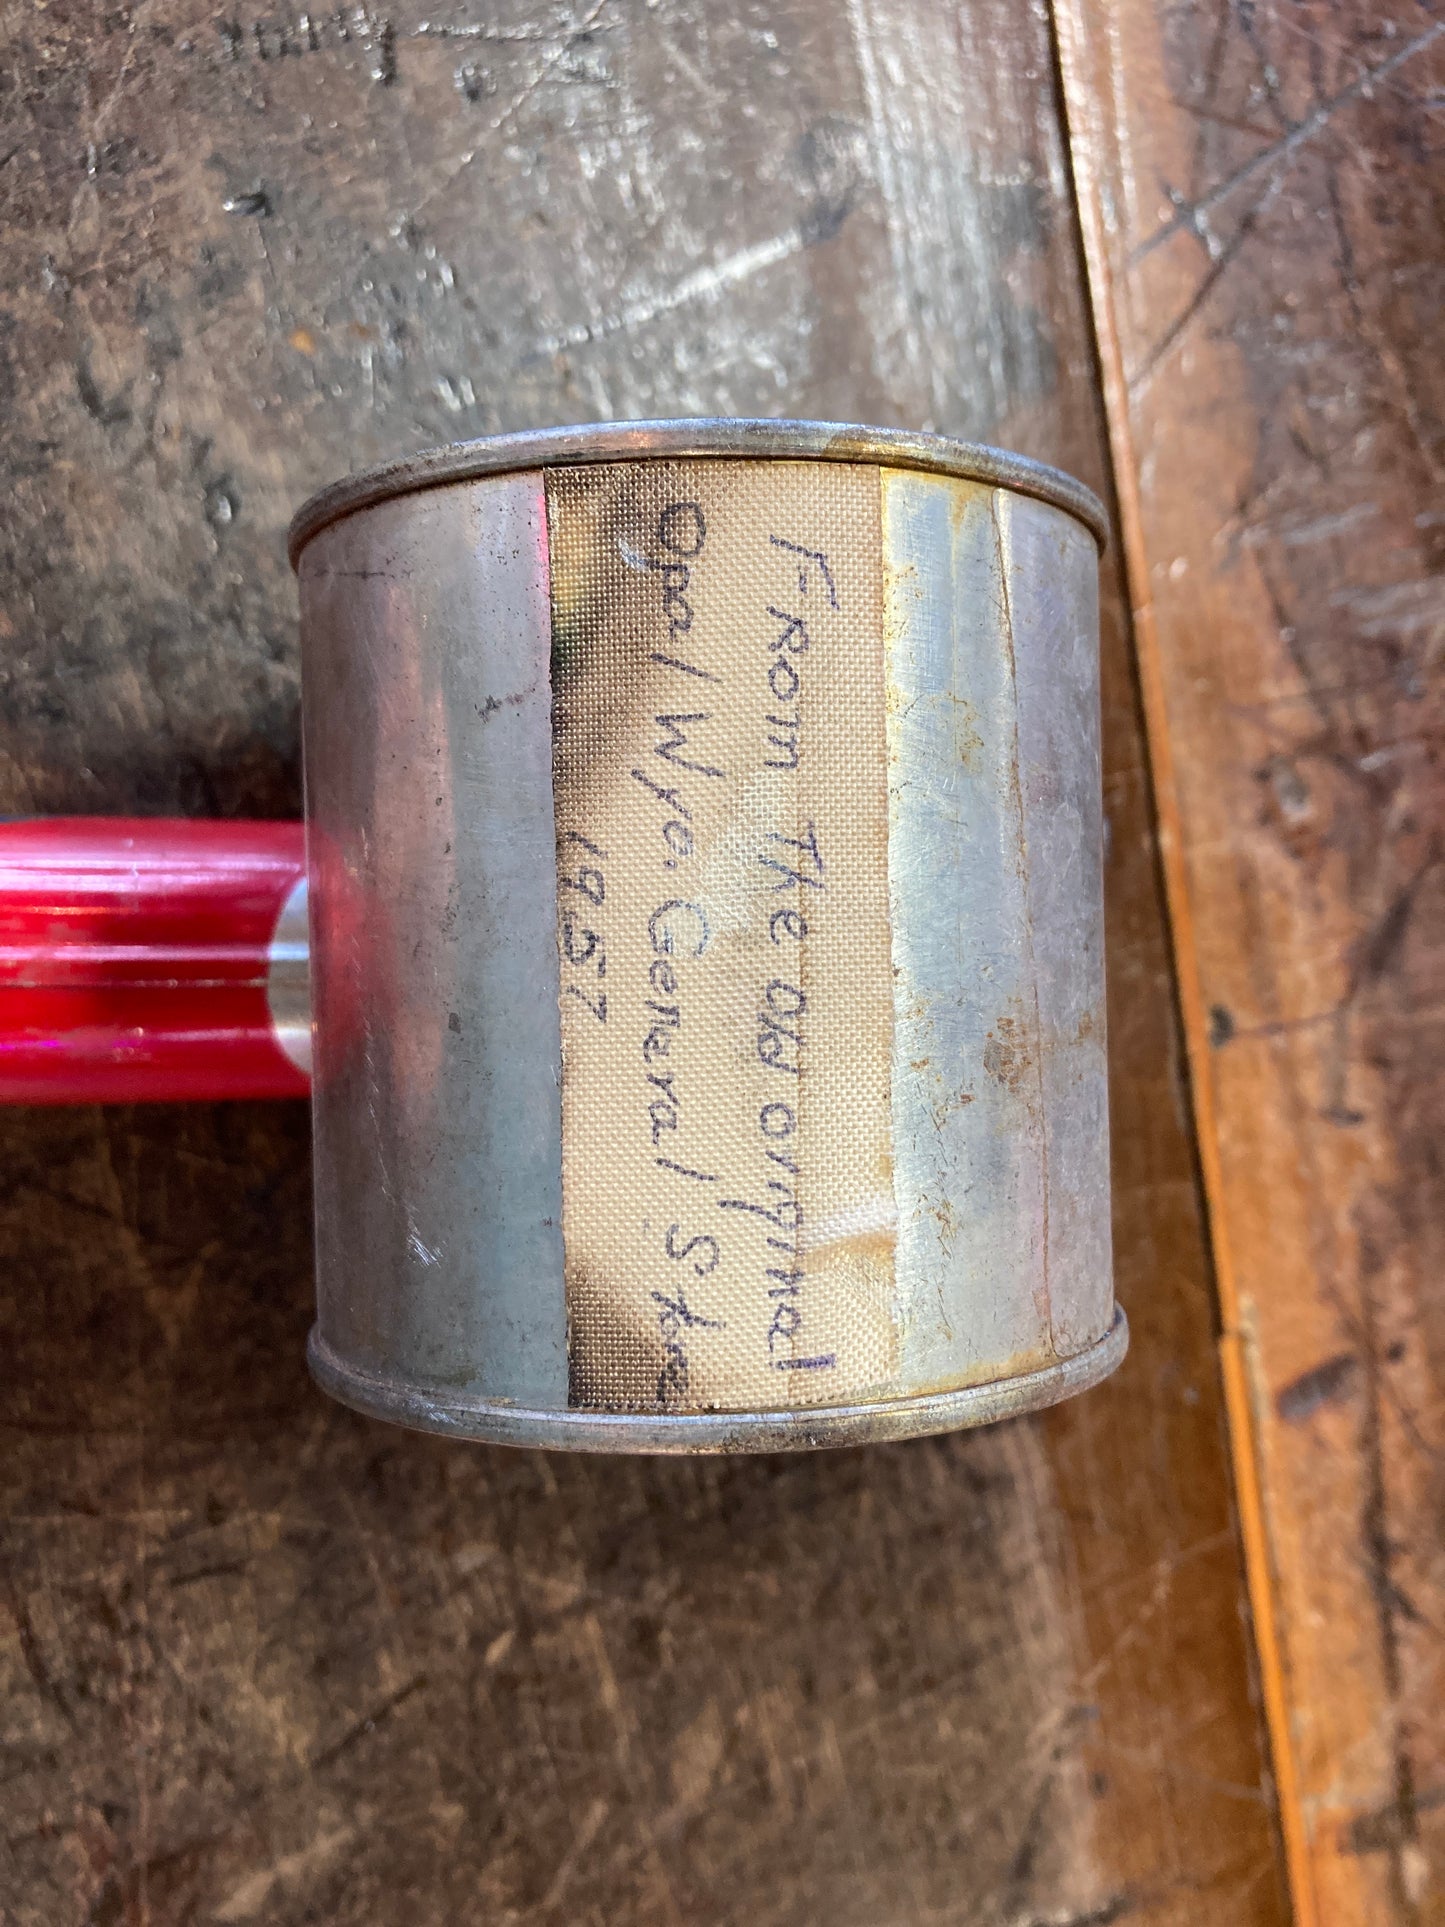 From The Old original
Opal Wye. General Store
1957